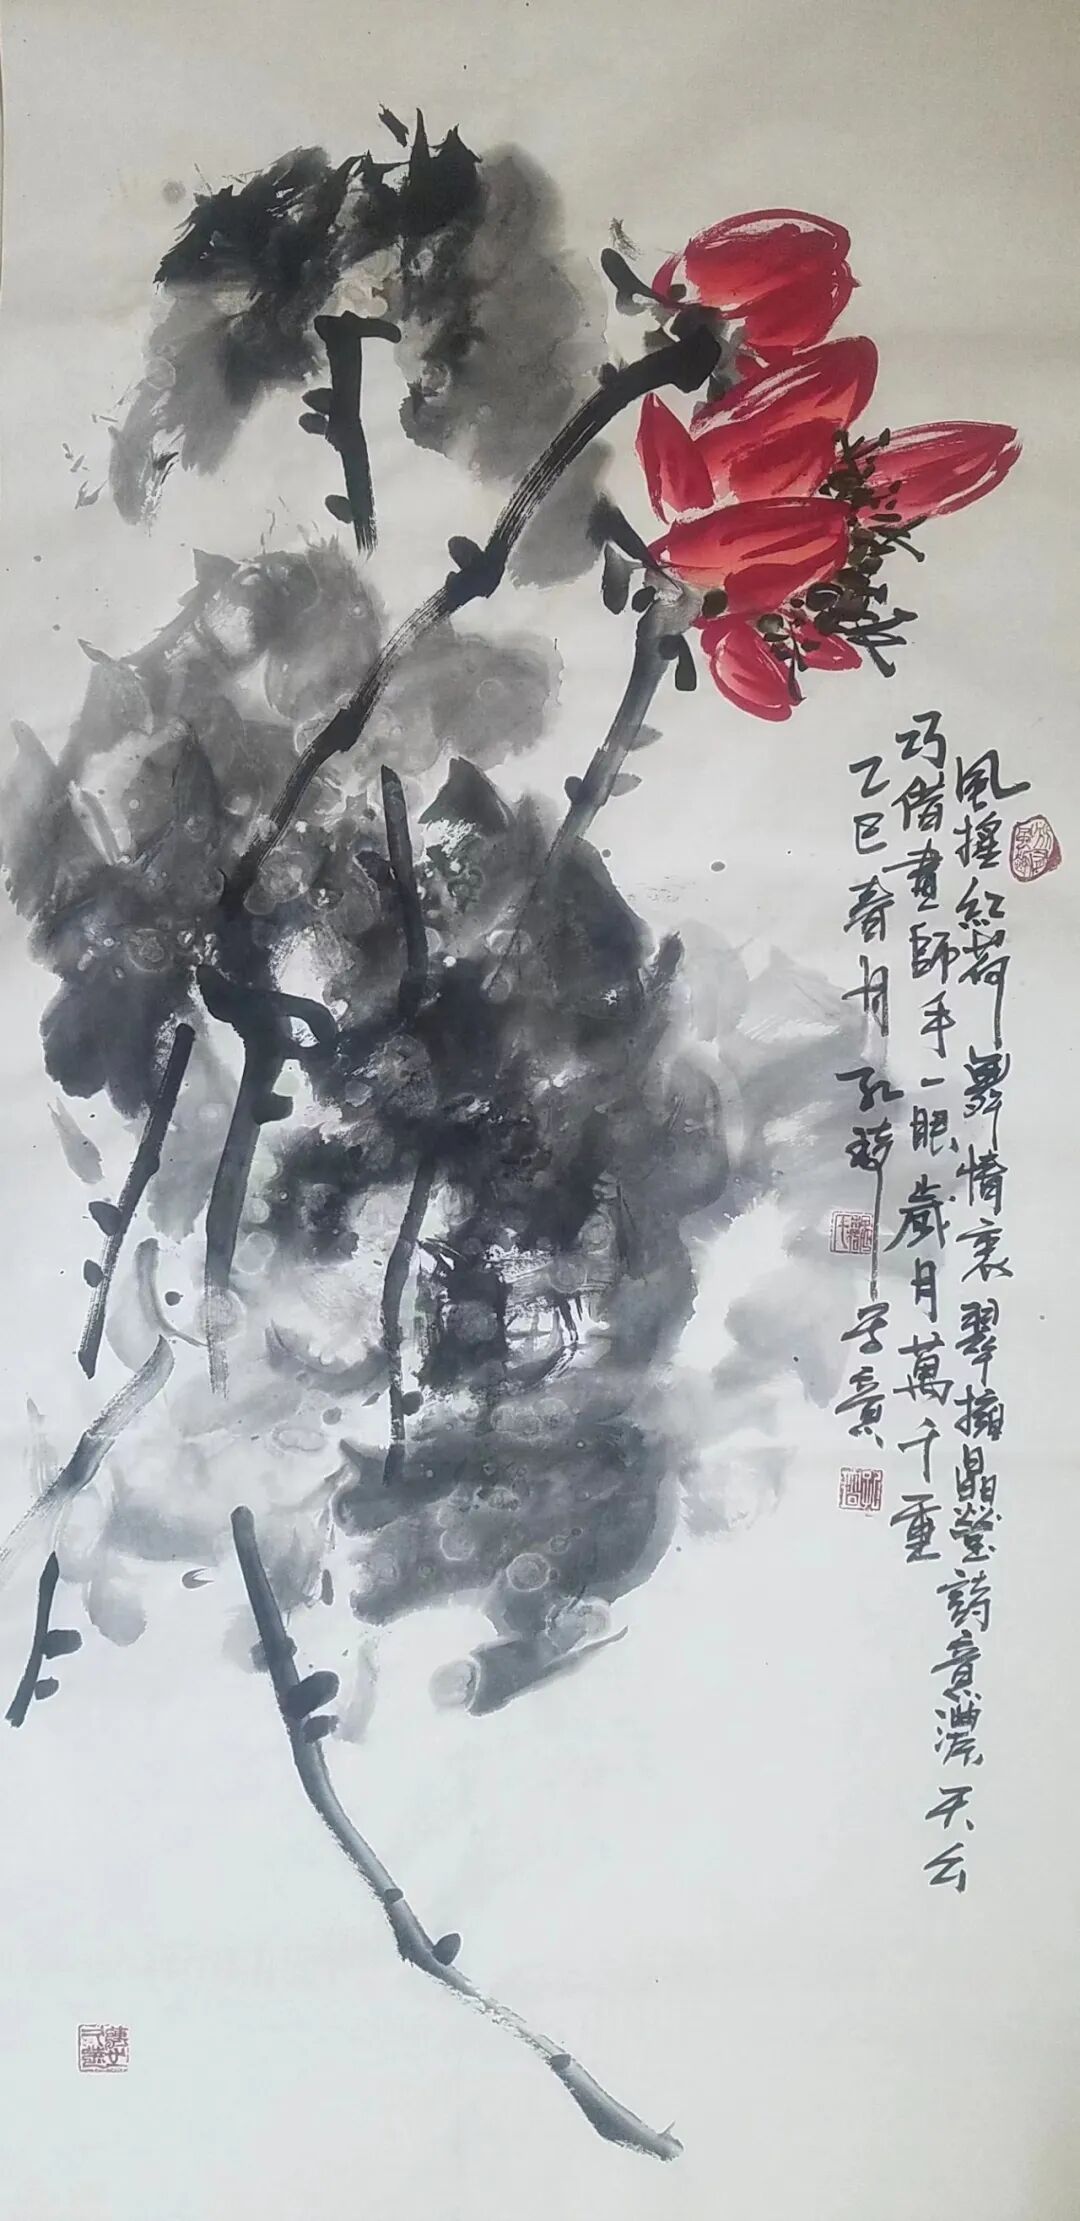 風搖紅荷舞情衷翠擁晶瑩詩意濃天公
巧借畫師手一眼歲月萬千重
乙巳春月孔琦写意